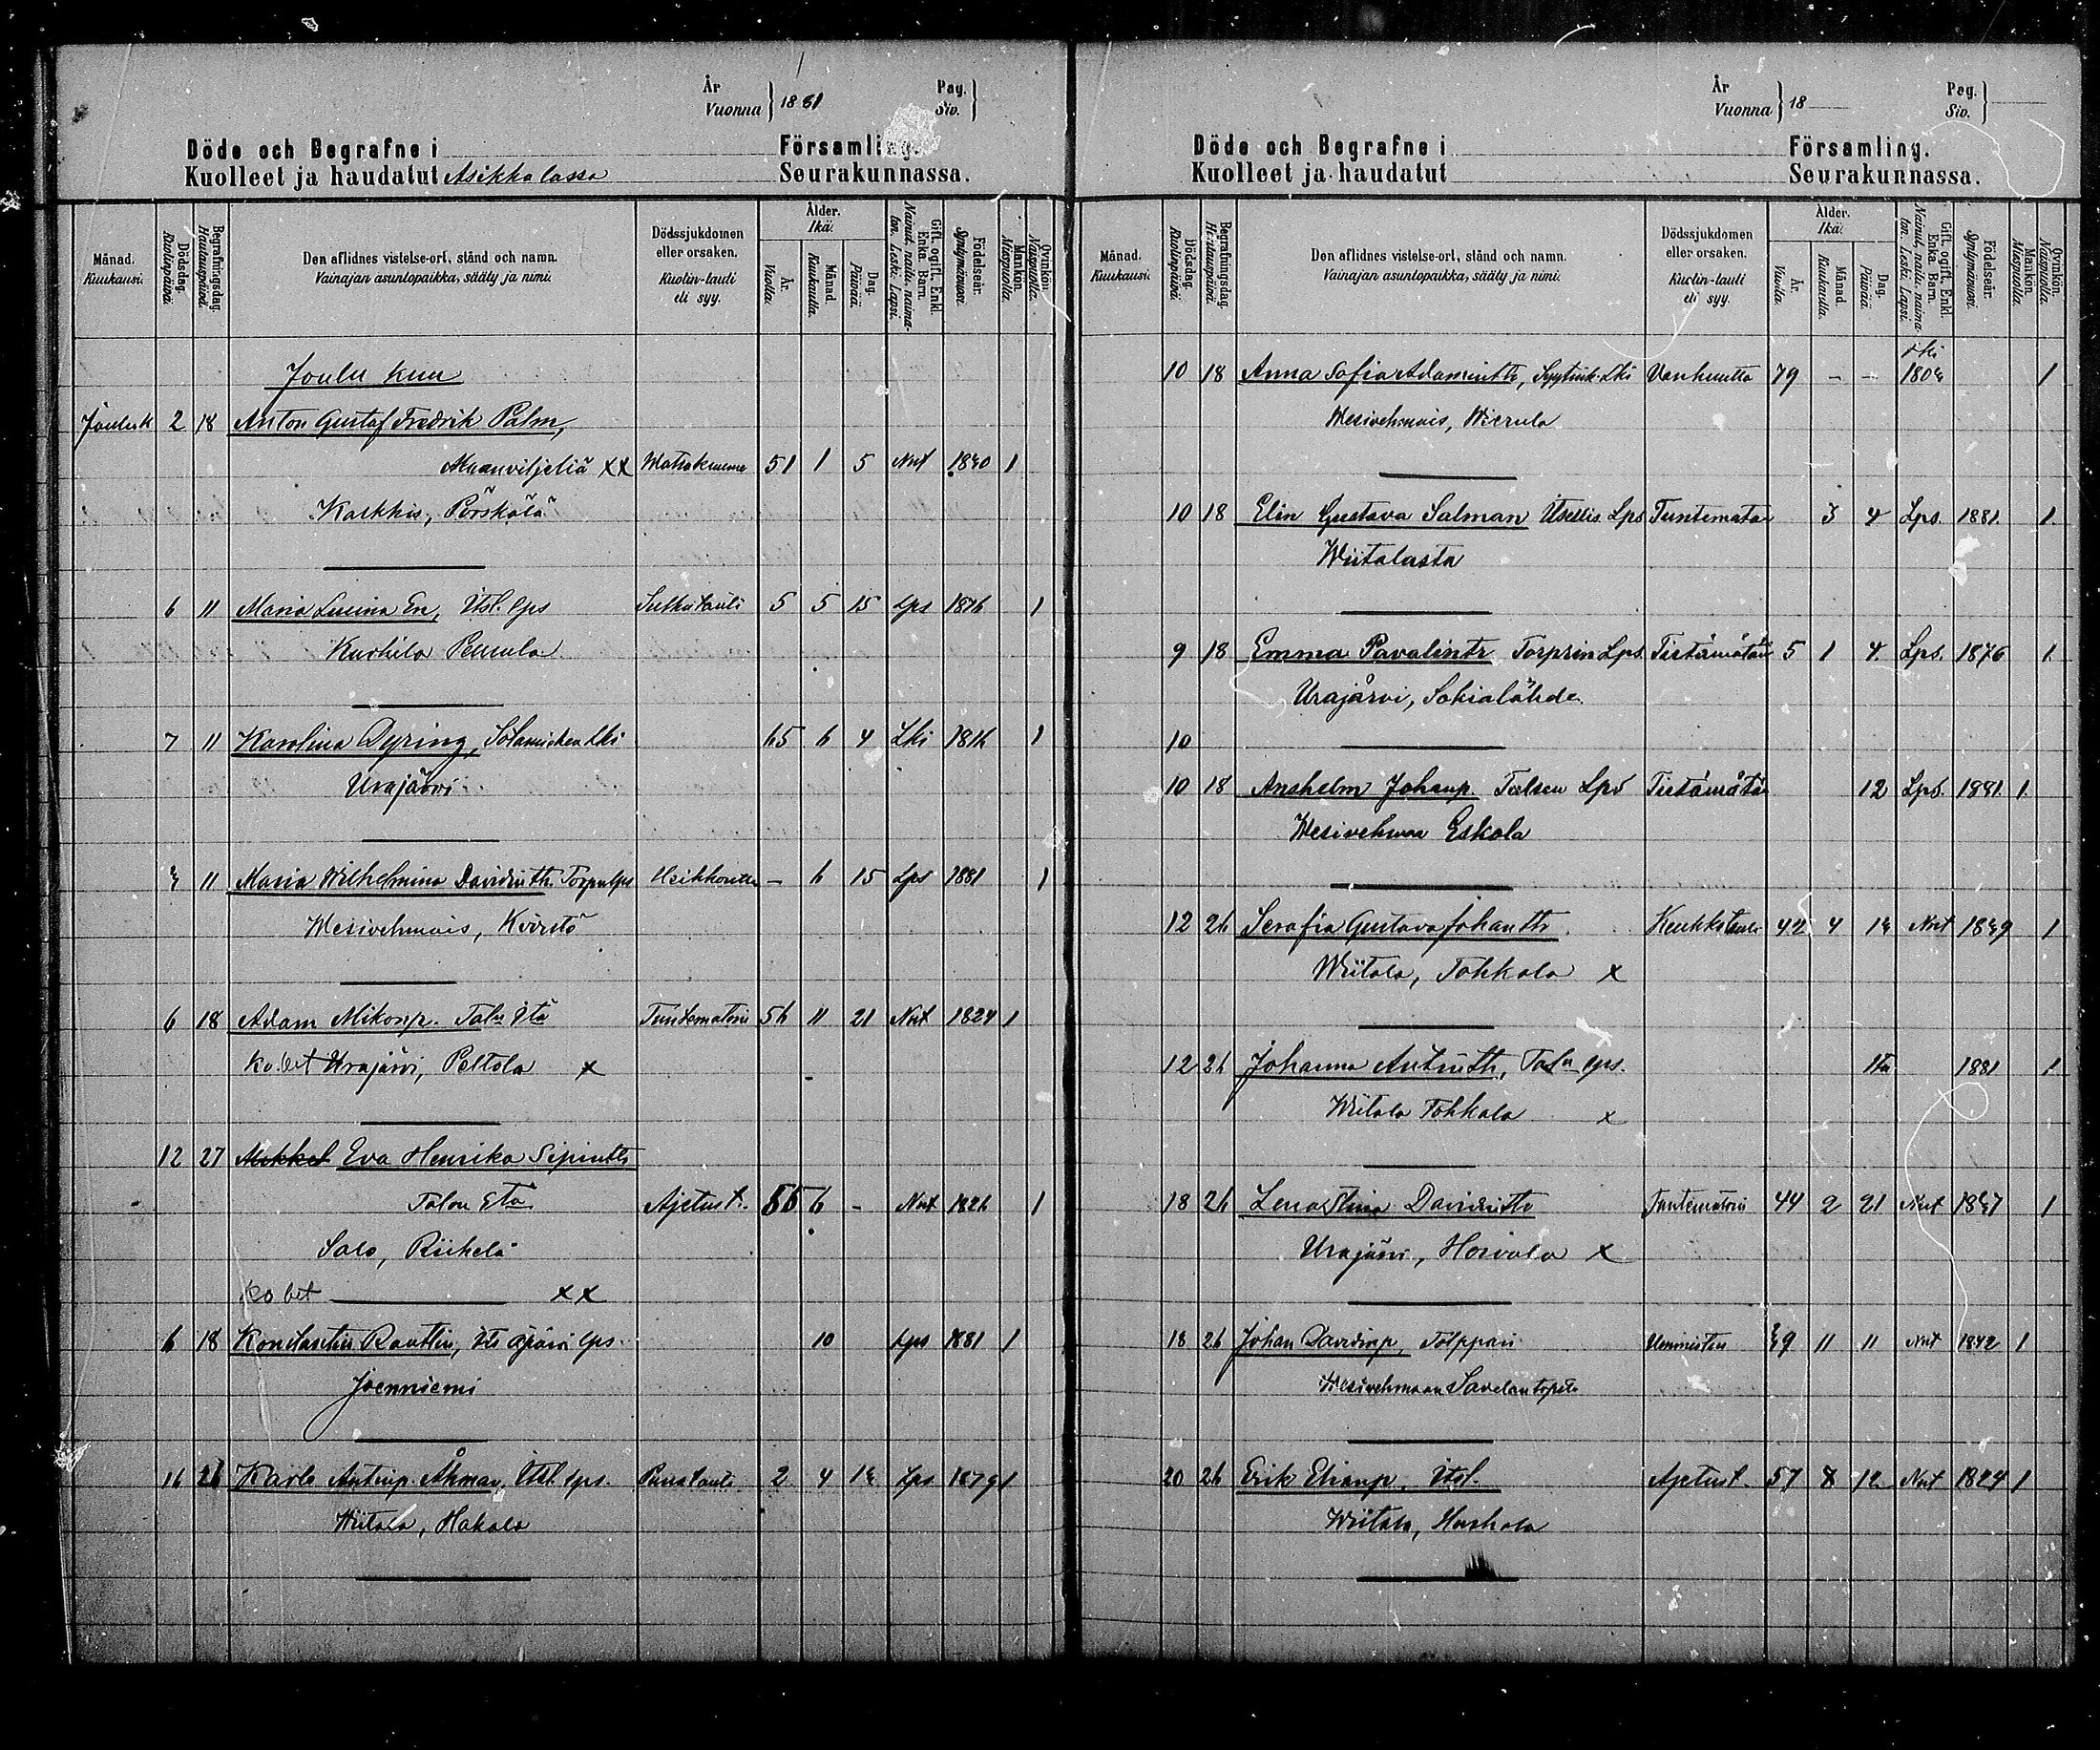 År
Vuonna } 1881
Pag.
Siv. }
Döde och Begrafne i Församling.
Kuolleet ja haudatut Asikkalassa Seurakunnassa.
Månad. Kuukausi.
Dödsdag. Kuolinpäivä.
Begrafningsdag. Hautauspäivä.
Den aflidnes vistelse-ort, stånd och namn.
Vainajan asuntopaikka, sääty ja nimi.
Dödssjukdomen eller orsaken.
Kuolin-tauti eli syy.
Ålder. Ikä.
År. Vuotta.
Månad. Kuukautta.
Dag. Päivää.
Gift, ogift, Enkl. Enka. Barn.
Nainut, nailu, naimaton. Leski. Lapsi.
Födelseår. Syntymävuosi.
Mankön. Miespuolia.
Qvinkön. Naispuolia.
Joulu kuu
Jouluk 2 18 Anton Gustaf Fredrik Palm,
Maanviljeliä xx 51 1 5 Nut 1830 1
Karkkis, Pörskälä
6 11 Maria Lusina En, Itsl. lps 5 5 15 Lps 1876 1
Kurhila
7 11 Karolina Dyring, Sotamiehen Lki 65 6 4 Lki 1816 1
Urajärvi
7 11 Maria Wilhelmina Davidintr. Torp. lps Heikkoutta – 6 15 Lps 1881 1
Wesivehmais,
6 18 Adam Mikonp. Talu Itä Tuntematoin 56 11 21 Nut 1824 1
ko. bet Urajärvi, Peltola x
12 27 Mikkel Eva Henrika Sipintr
Talon Etä Ajetust. 55 6 – Nut 1826 1
Salo, Riihelä
ko bet xx
6 18 Konstantin Rauttin, Its äpärä lps. 10 Lps 1881 1
Joenniemi
16 26 Karlo Antinp. Åhman, Itsl. lps. 2 4 14 Lps 1879 1
Wiitala, Hakala
År
Vuonna } 18
Pag.
Siv. }
Döde och Begrafne i Församling.
Kuolleet ja haudatut Seurakunnassa.
Månad. Kuukausi.
Dödsdag. Kuolinpäivä.
Begrafningsdag. Hautauspäivä.
Den aflidnes vistelse-ort, stånd och namn.
Vainajan asuntopaikka, sääty ja nimi.
Dödssjukdomen eller orsaken.
Kuolin-tauti eli syy.
Ålder. Ikä.
År. Vuotta.
Månad. Kuukautta.
Dag. Päivää.
Gift, ogift, Enkl. Enka. Barn.
Nainut, nailu, naimaton. Leski. Lapsi.
Födelseår. Syntymävuosi.
Mankön. Miespuolia.
Qvinkön. Naispuolia.
10 18 Anna Sofia Adamintr, Lki Vanhuutta 79 – – Lki 1802 1
Wesivehmais, Wierula
10 18 Elin Gustava Salman Itsellis. Lps Tuntematoin 3 4 Lps. 1881. 1.
Wiitalasta
9 18 Emma Pavalintr Torpparin Lps. Tietämätön 5 1 4. Lps. 1876 1.
Urajärvi, Sokialähde.
10
10 18 Anshelm Johanp. Talsen Lps Tietämätön 12 Lps. 1881. 1.
Wesivehmaa Eskola
12 26 Serafia Gustava Johantr. 42 4 14 Nut 1839 1
Wiitala, Tohkala x
12 26 Johanna Antintr, Talu lps. 1 tu 1881 1
Wiitala Tohkala x
18 26 Lena Stina Davidintr Tuntematoin 44 2 21 Nut 1837 1
Urajärvi, Hoivala x
18 26 Johan Davidinp, Tolppari 39 11 11 Nut 1842 1
Wesivehmaan
20 26 Erik Elianp. Itsl. Ajetust. 57 8 12 Nut 1824 1
Wiitala,